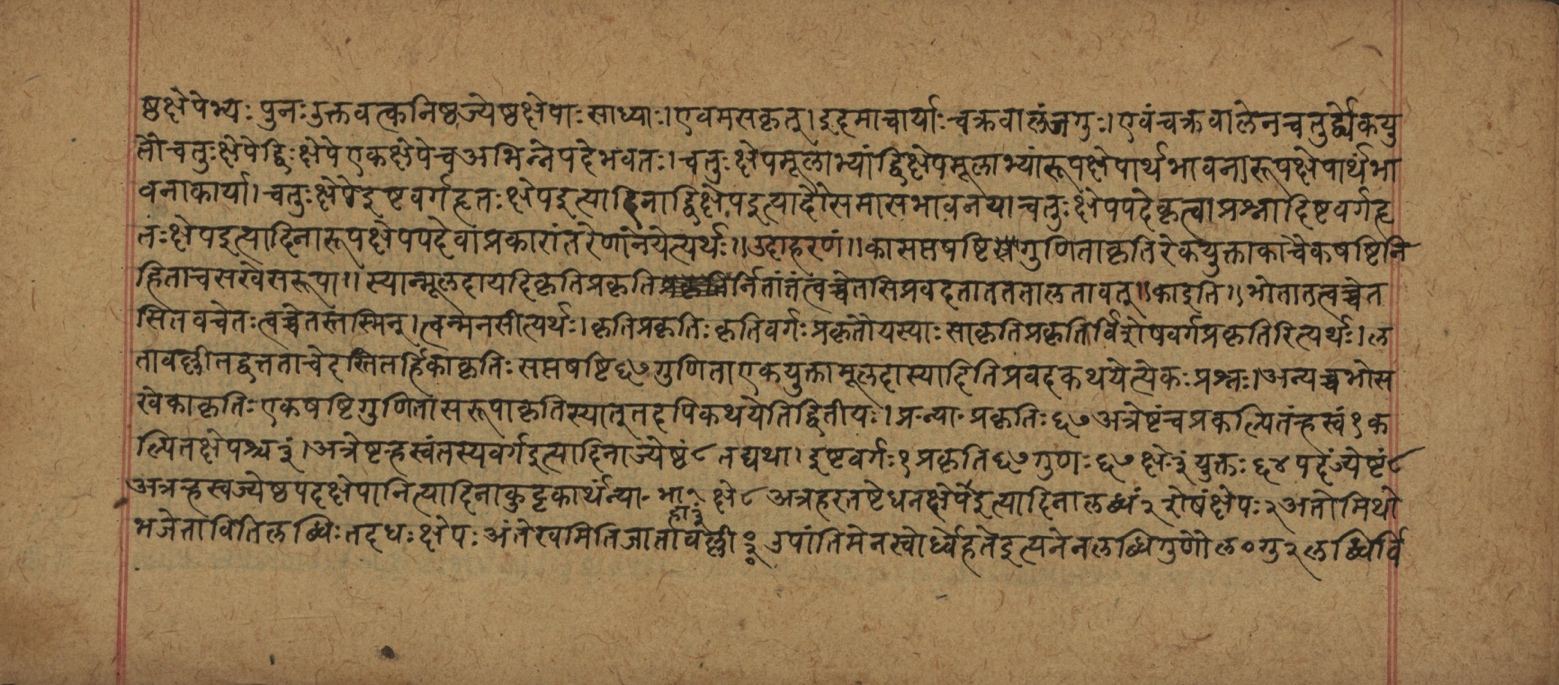 ष्ठक्षेपेभ्यः पुनःउक्तवत्कनिष्ठज्येष्ठक्षेपाः साध्याः। एवमसकृत्। इदमाचार्याः चक्रवालंजगुः। एवंचक्रवालेनचतुर्द्व्येकयु
तौचतुःक्षेपेद्विःक्षेपेएकक्षेपेच अभिन्नेपदेभवतः। चतुःक्षेपमूलाभ्यांद्विक्षेपमूलाभ्यांरूपक्षेपार्थभावनारूपक्षेपार्थभा
वनाकार्या। चतुःक्षेपेइष्टवर्गहृतःक्षेपइत्यादिनाद्विक्षेपइत्यादौसमासभावनयाचतुःक्षेपपदेकृत्वाप्रश्नादिष्टवर्गहृ
तःक्षेपइत्यादिनारूपक्षेपपदेवाप्रकारांतरेणानयेत्यर्थः॥ उदाहरणं॥ कासप्तषष्टिगुणिताकृतिरेकयुक्ताकाचैकषष्टिनि
हिताचसखेसरूपा॥ स्यान्मूलदायदिकृतिप्रकृतिर्नितांतंत्वच्चेतसिप्रवदतातततालतावत्॥ काइति॥ भोतातत्वच्चेत
सितवचेतःत्वच्चेतस्तस्मिन्। त्वन्मनसीत्यर्थः। कृतिप्रकृतिः कृतिवर्गः प्रकृतौयस्याः साकृतिप्रकृतिर्विशेषवर्गप्रकृतिरित्यर्थः। ल
तावल्लीतद्वत्तताचेदस्तितर्हिकाकृतिः सप्तषष्टि६७गुणिताएकयुक्तामूलदास्यादितिप्रवदकथयेत्येकः प्रश्नः। अन्यच्चभोस
खेकाकृतिः एकषष्टिगुणितासरूपाकृतिस्यात्तदपिकथयेतिद्वितीयः। प्र॰न्या॰ प्रकृतिः६७ अत्रेष्टंचप्रकल्पितंऱ्हस्वं१ क
ल्पितक्षेपश्च ३ं। अत्रेष्टंऱ्हस्वंतस्यवर्गइत्यादिनाज्येष्ठं८ तद्यथा। इष्टवर्गः१ प्रकृति६७गुणः६७ क्षे॰३ंयुक्तः६४ पदंज्येष्टं८
अत्रऱ्हस्वज्येष्ठपदक्षेपानित्यादिनाकुट्टकार्थंन्या॰ भा१ हा३ क्षे८ अत्रहरतष्टेधनक्षेपेइत्यादिनालब्धं२ शेषंक्षेपः२ अतोमिथो
भजेतावितिलब्धिः तदधः क्षेपः अंतेखमितिजातावल्ली उपांतिमेनस्वोर्ध्वेहतेइत्यनेनलब्धिगुणौल०गु२ लब्धिर्वि